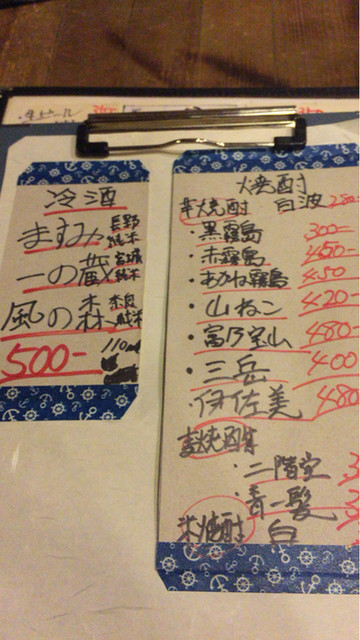 生ビール
冷酒
ますみ 長野 純米
一の蔵 宮城 純米
風の森 奈良 純米
500-
110ml
焼酎
芋焼酎 白波 280-
・黒霧島 300-
・赤霧島 450-
・あかね霧島 450
・山ねこ 420-
・富乃宝山 480-
・三岳 400
・伊佐美 480
麦焼酎
・二階堂
・青一髪
米焼酎 白